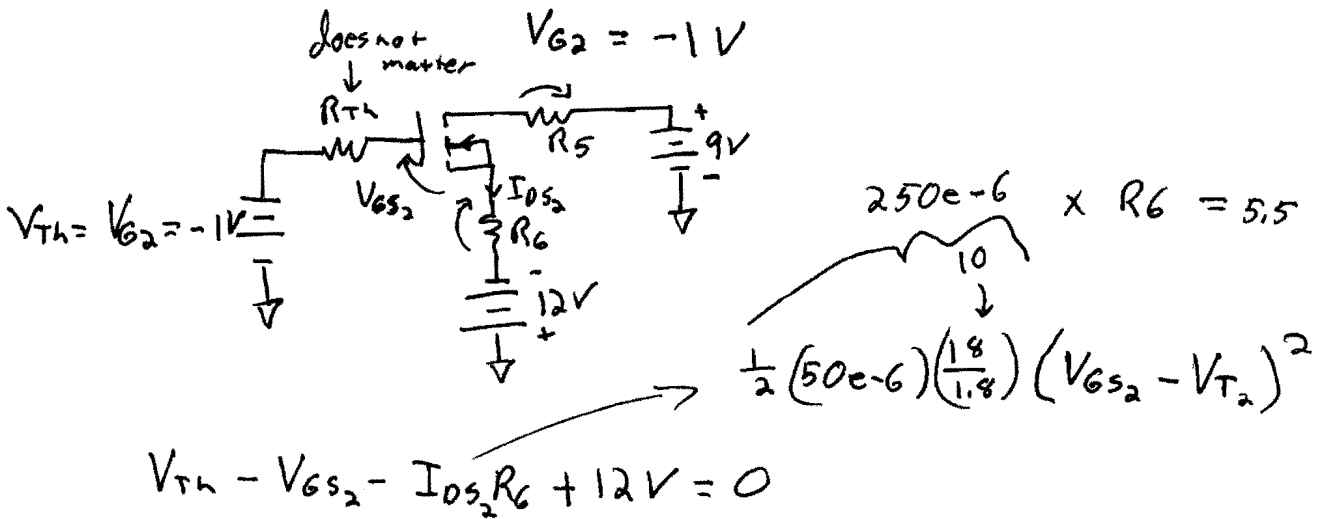 does not
matter
V_G2 = -1 V
R_Th
R5
+
9V
-
V_GS2
I_DS2
R6
V_Th = V_G2 = -1V
-
12V
+
250e-6 × R6 = 5.5
10
1/2 (50e-6) (18/1.8) (V_GS2 - V_T2)^2
V_Th - V_GS2 - I_DS2 R6 + 12V = 0